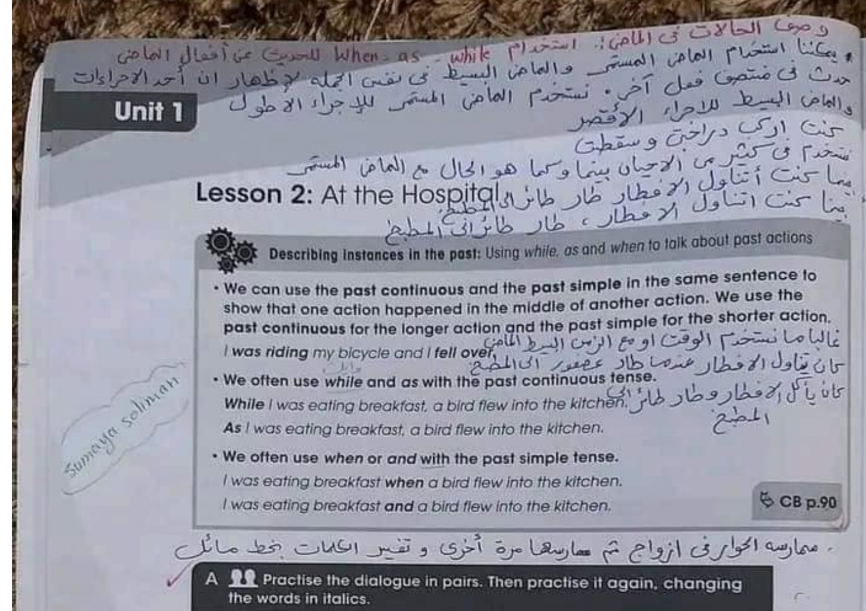 وصف الحالات في الماضي: استخدام While - as - When للحديث عن أفعال الماضي
يمكننا استخدام الماضي المستمر والماضي البسيط في نفس الجملة لإظهار ان أحد الاجراءات
حدث في منتصف فعل آخر. نستخدم الماضي المستمر للإجراء الاطول
والماضي البسيط للاجراء الأقصر
Unit 1
كنت اركب دراجتي وسقطت
نستخدم في كثير من الاحيان بينما وكما هو الحال مع الماضي المستمر
بينما كنت أتناول الافطار طار طائر الى المطبخ
Lesson 2: At the Hospital
بينا كنت اتناول الافطار، طار طائر الى المطبخ
Describing instances in the past: Using while, as and when to talk about past actions
• We can use the past continuous and the past simple in the same sentence to
show that one action happened in the middle of another action. We use the
past continuous for the longer action and the past simple for the shorter action.
غالبا ما نستخدم الوقت او مع الزمن البسيط الماضي
I was riding my bicycle and I fell over.
كان يتناول الافطار عندما طار عصفور الى المطبخ
• We often use while and as with the past continuous tense.
كان يأكل الافطار وطار طائر الى
While I was eating breakfast, a bird flew into the kitchen.
المطبخ
As I was eating breakfast, a bird flew into the kitchen.
Sumaya soliman
• We often use when or and with the past simple tense.
I was eating breakfast when a bird flew into the kitchen.
I was eating breakfast and a bird flew into the kitchen.
CB p.90
. ممارسه الحوار في ازواج ثم ممارسها مرة أخرى و تغير الكلمات بخط مائل
A Practise the dialogue in pairs. Then practise it again, changing
the words in italics.